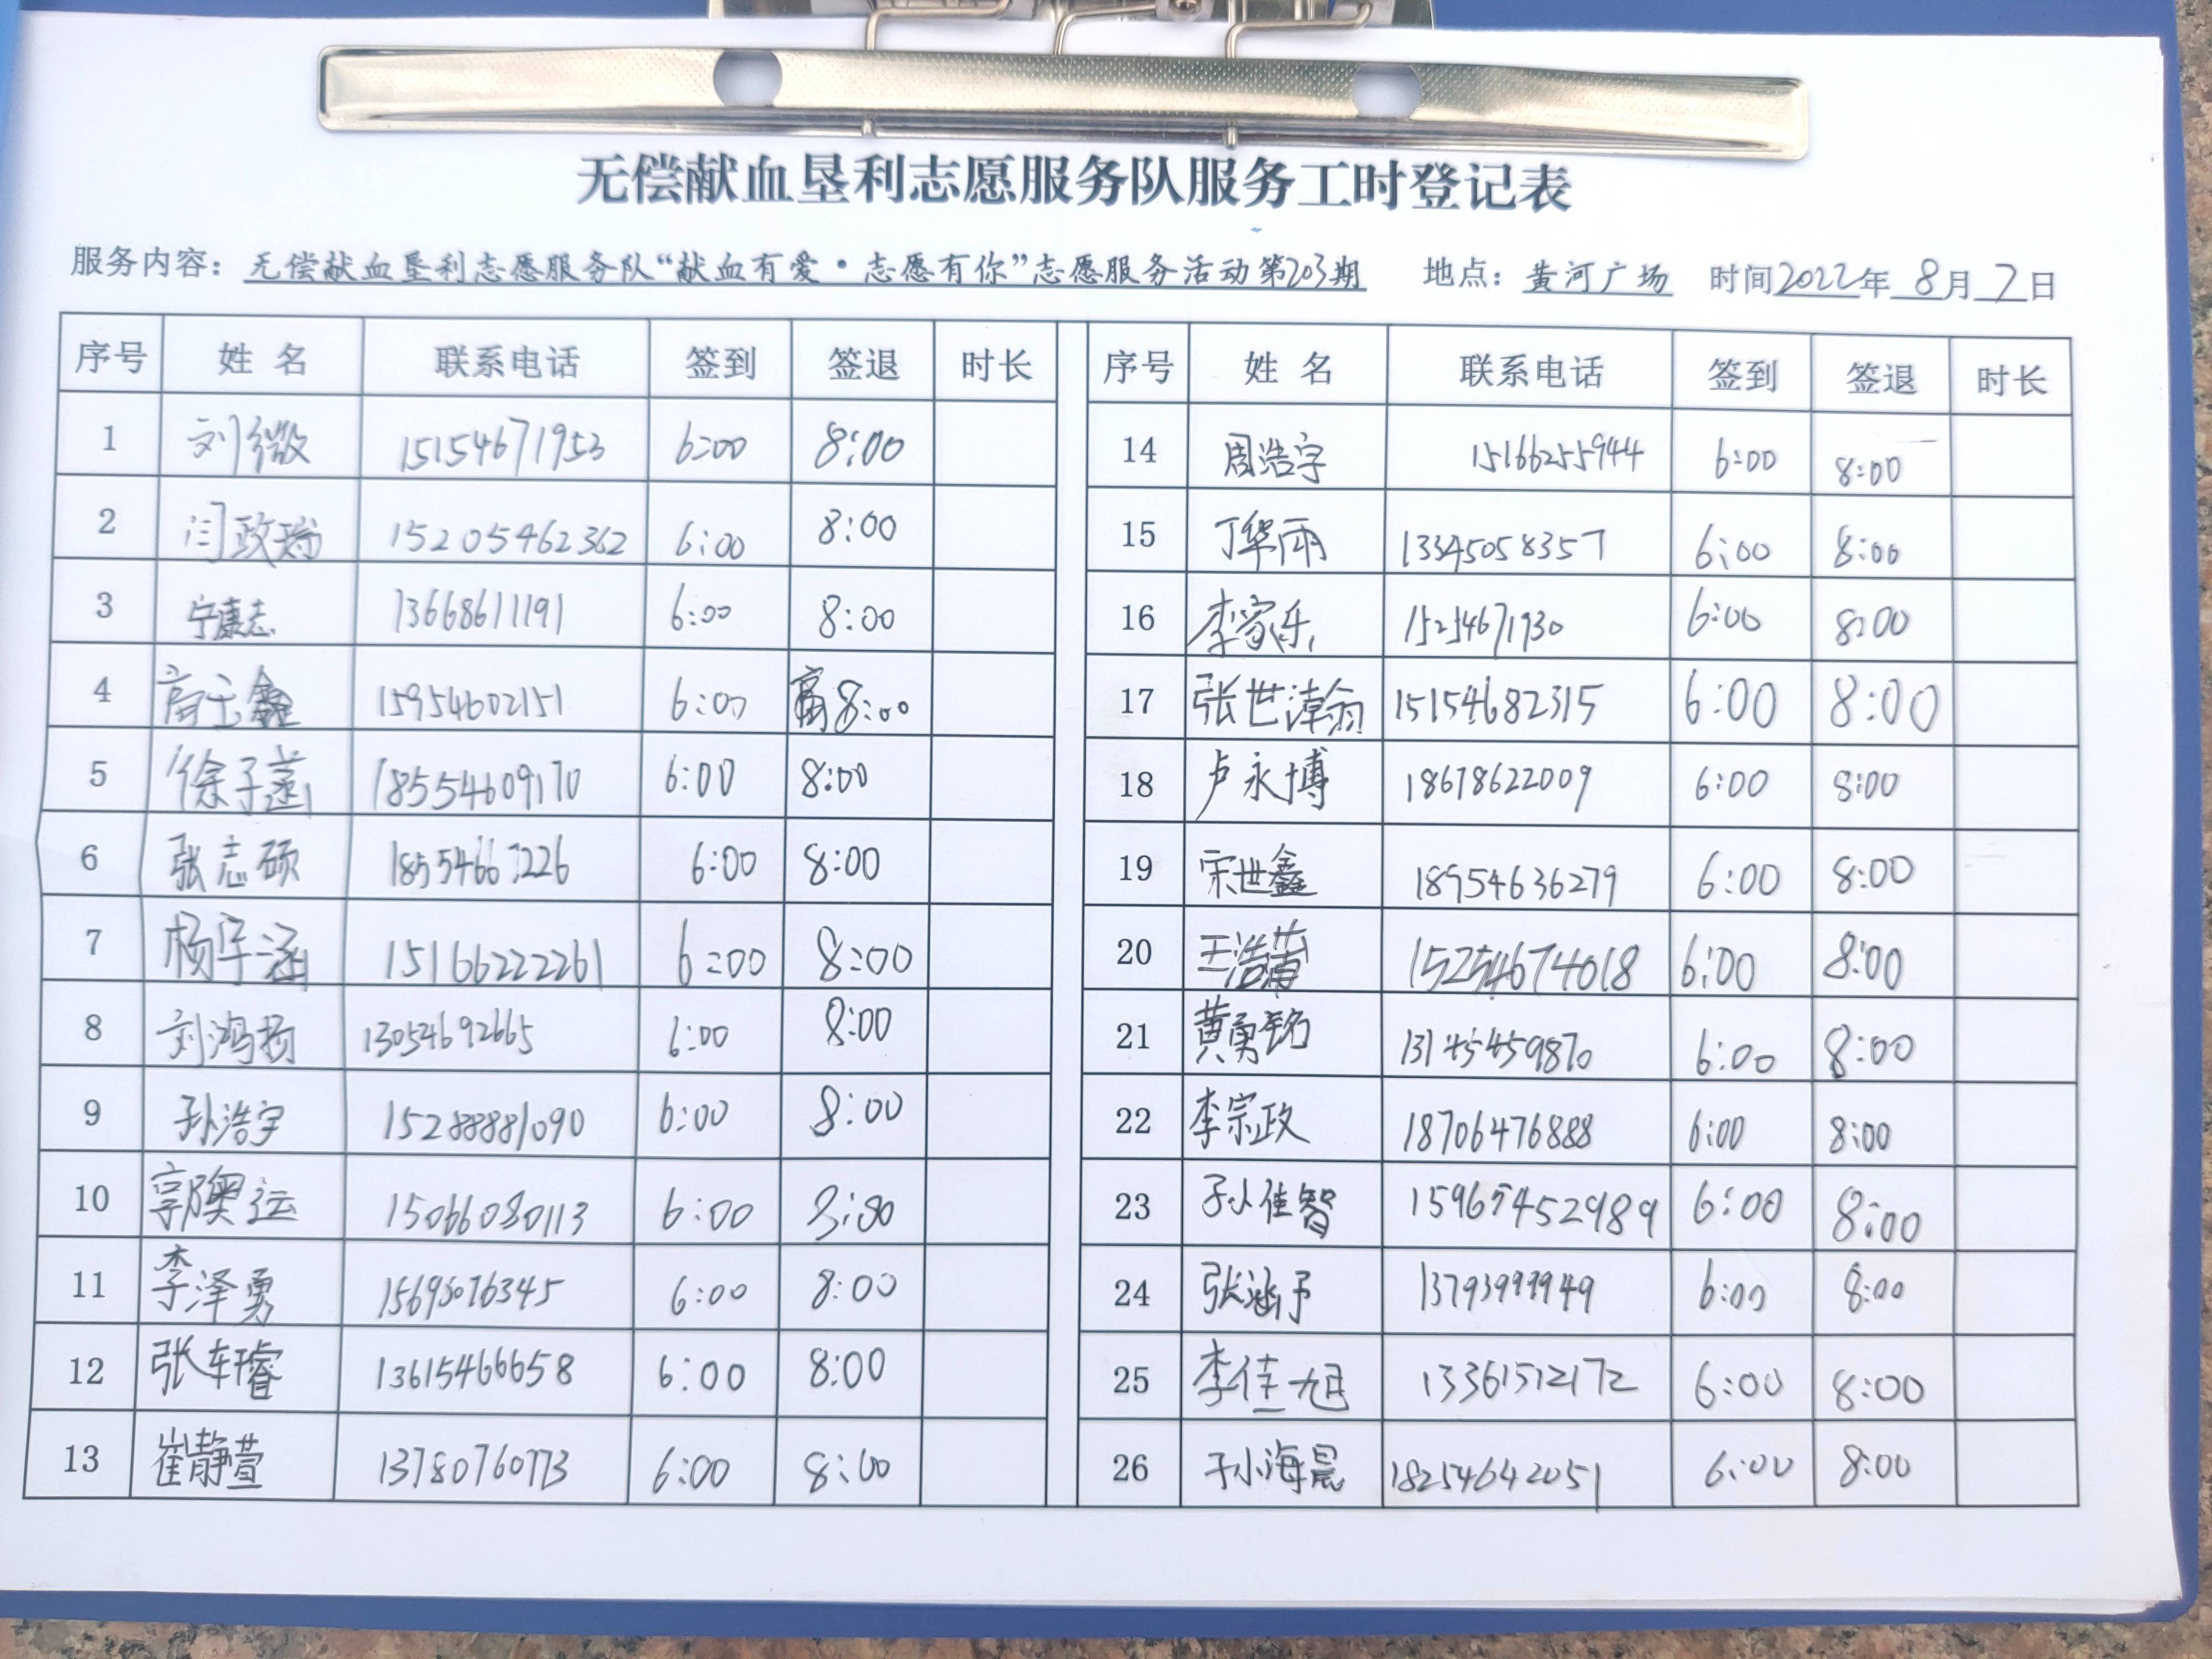 无偿献血垦利志愿服务队服务工时登记表
服务内容：无偿献血垦利志愿服务队“献血有爱·志愿有你”志愿服务活动第203期 地点：黄河广场 时间2022年8月7日
序号 姓名 联系电话 签到 签退 时长 序号 姓名 联系电话 签到 签退 时长
1 刘微 15154671953 6:00 8:00 14 周浩宇 15166255944 6:00 8:00
2 闫政瑞 15205462362 6:00 8:00 15 丁华雨 13345058357 6:00 8:00
3 宁康志 13668611191 6:00 8:00 16 李家乐 15254671930 6:00 8:00
4 商玉鑫 15954602151 6:00 8:00 17 张世漳翁 15154682315 6:00 8:00
5 徐子涵 18554609170 6:00 8:00 18 卢永博 18678622009 6:00 8:00
6 张志硕 6:00 8:00 19 宋世鑫 18954636279 6:00 8:00
7 杨宇涵 15166222261 6:00 8:00 20 王浩 15254674018 6:00 8:00
8 刘鸿扬 13054692665 6:00 8:00 21 黄勇铭 6:00 8:00
9 孙浩宇 15288881090 6:00 8:00 22 李宗政 18706476888 6:00 8:00
10 郭奥运 15066080113 6:00 23 孙佳智 6:00 8:00
11 李泽勇 6:00 8:00 24 张涵予 13793999949 6:00 8:00
12 张轩睿 13615466658 6:00 8:00 25 李佳旭 13361512172 6:00 8:00
13 崔静萱 13780760773 6:00 8:00 26 孙海晨 18254642051 6:00 8:00